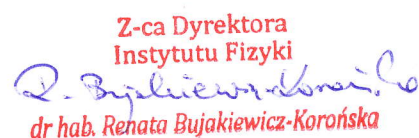 Z-ca Dyrektora
Instytutu Fizyki
R. Bujakiewicz-Korońska
dr hab. Renata Bujakiewicz-Korońska